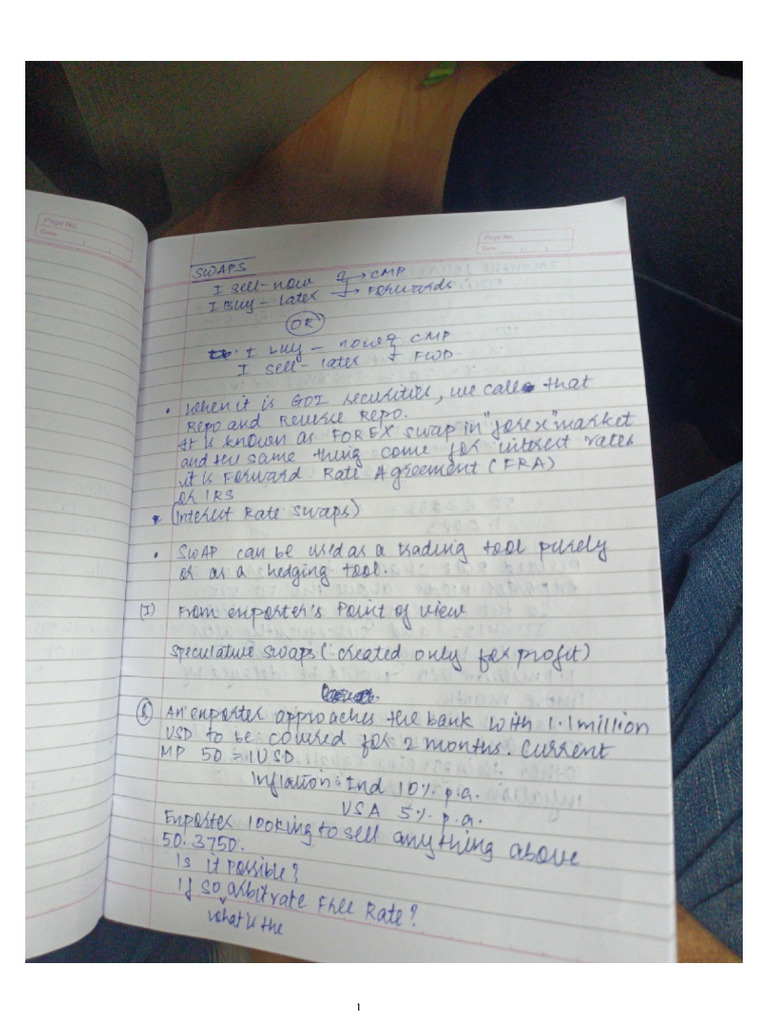 Page No.
Date
Page No.
Date
SWAPS
I sell - now → CMP
I Buy - later → Forwards
OR
I buy - now CMP
I sell - later FWD.
• When it is GOI securities, we call that
Repo and Reverse Repo.
It is known as FOREX swap in "forex" market
and the same thing come for interest rates
it is Forward Rate Agreement (FRA)
or IRS
• (Interest Rate Swaps)
• SWAP can be used as a trading tool purely
or as a hedging tool.
(I) From exporter's Point of view
Speculative swaps (-created only for profit)
Q An exporter approaches the bank with 1.1 million
USD to be covered for 2 months. Current
MP 50 = 1USD.
Inflation: Ind 10% p.a.
USA 5% p.a.
Exporter looking to sell anything above
50.3750.
Is it possible?
If so arbitrate Free Rate?
what is the
1